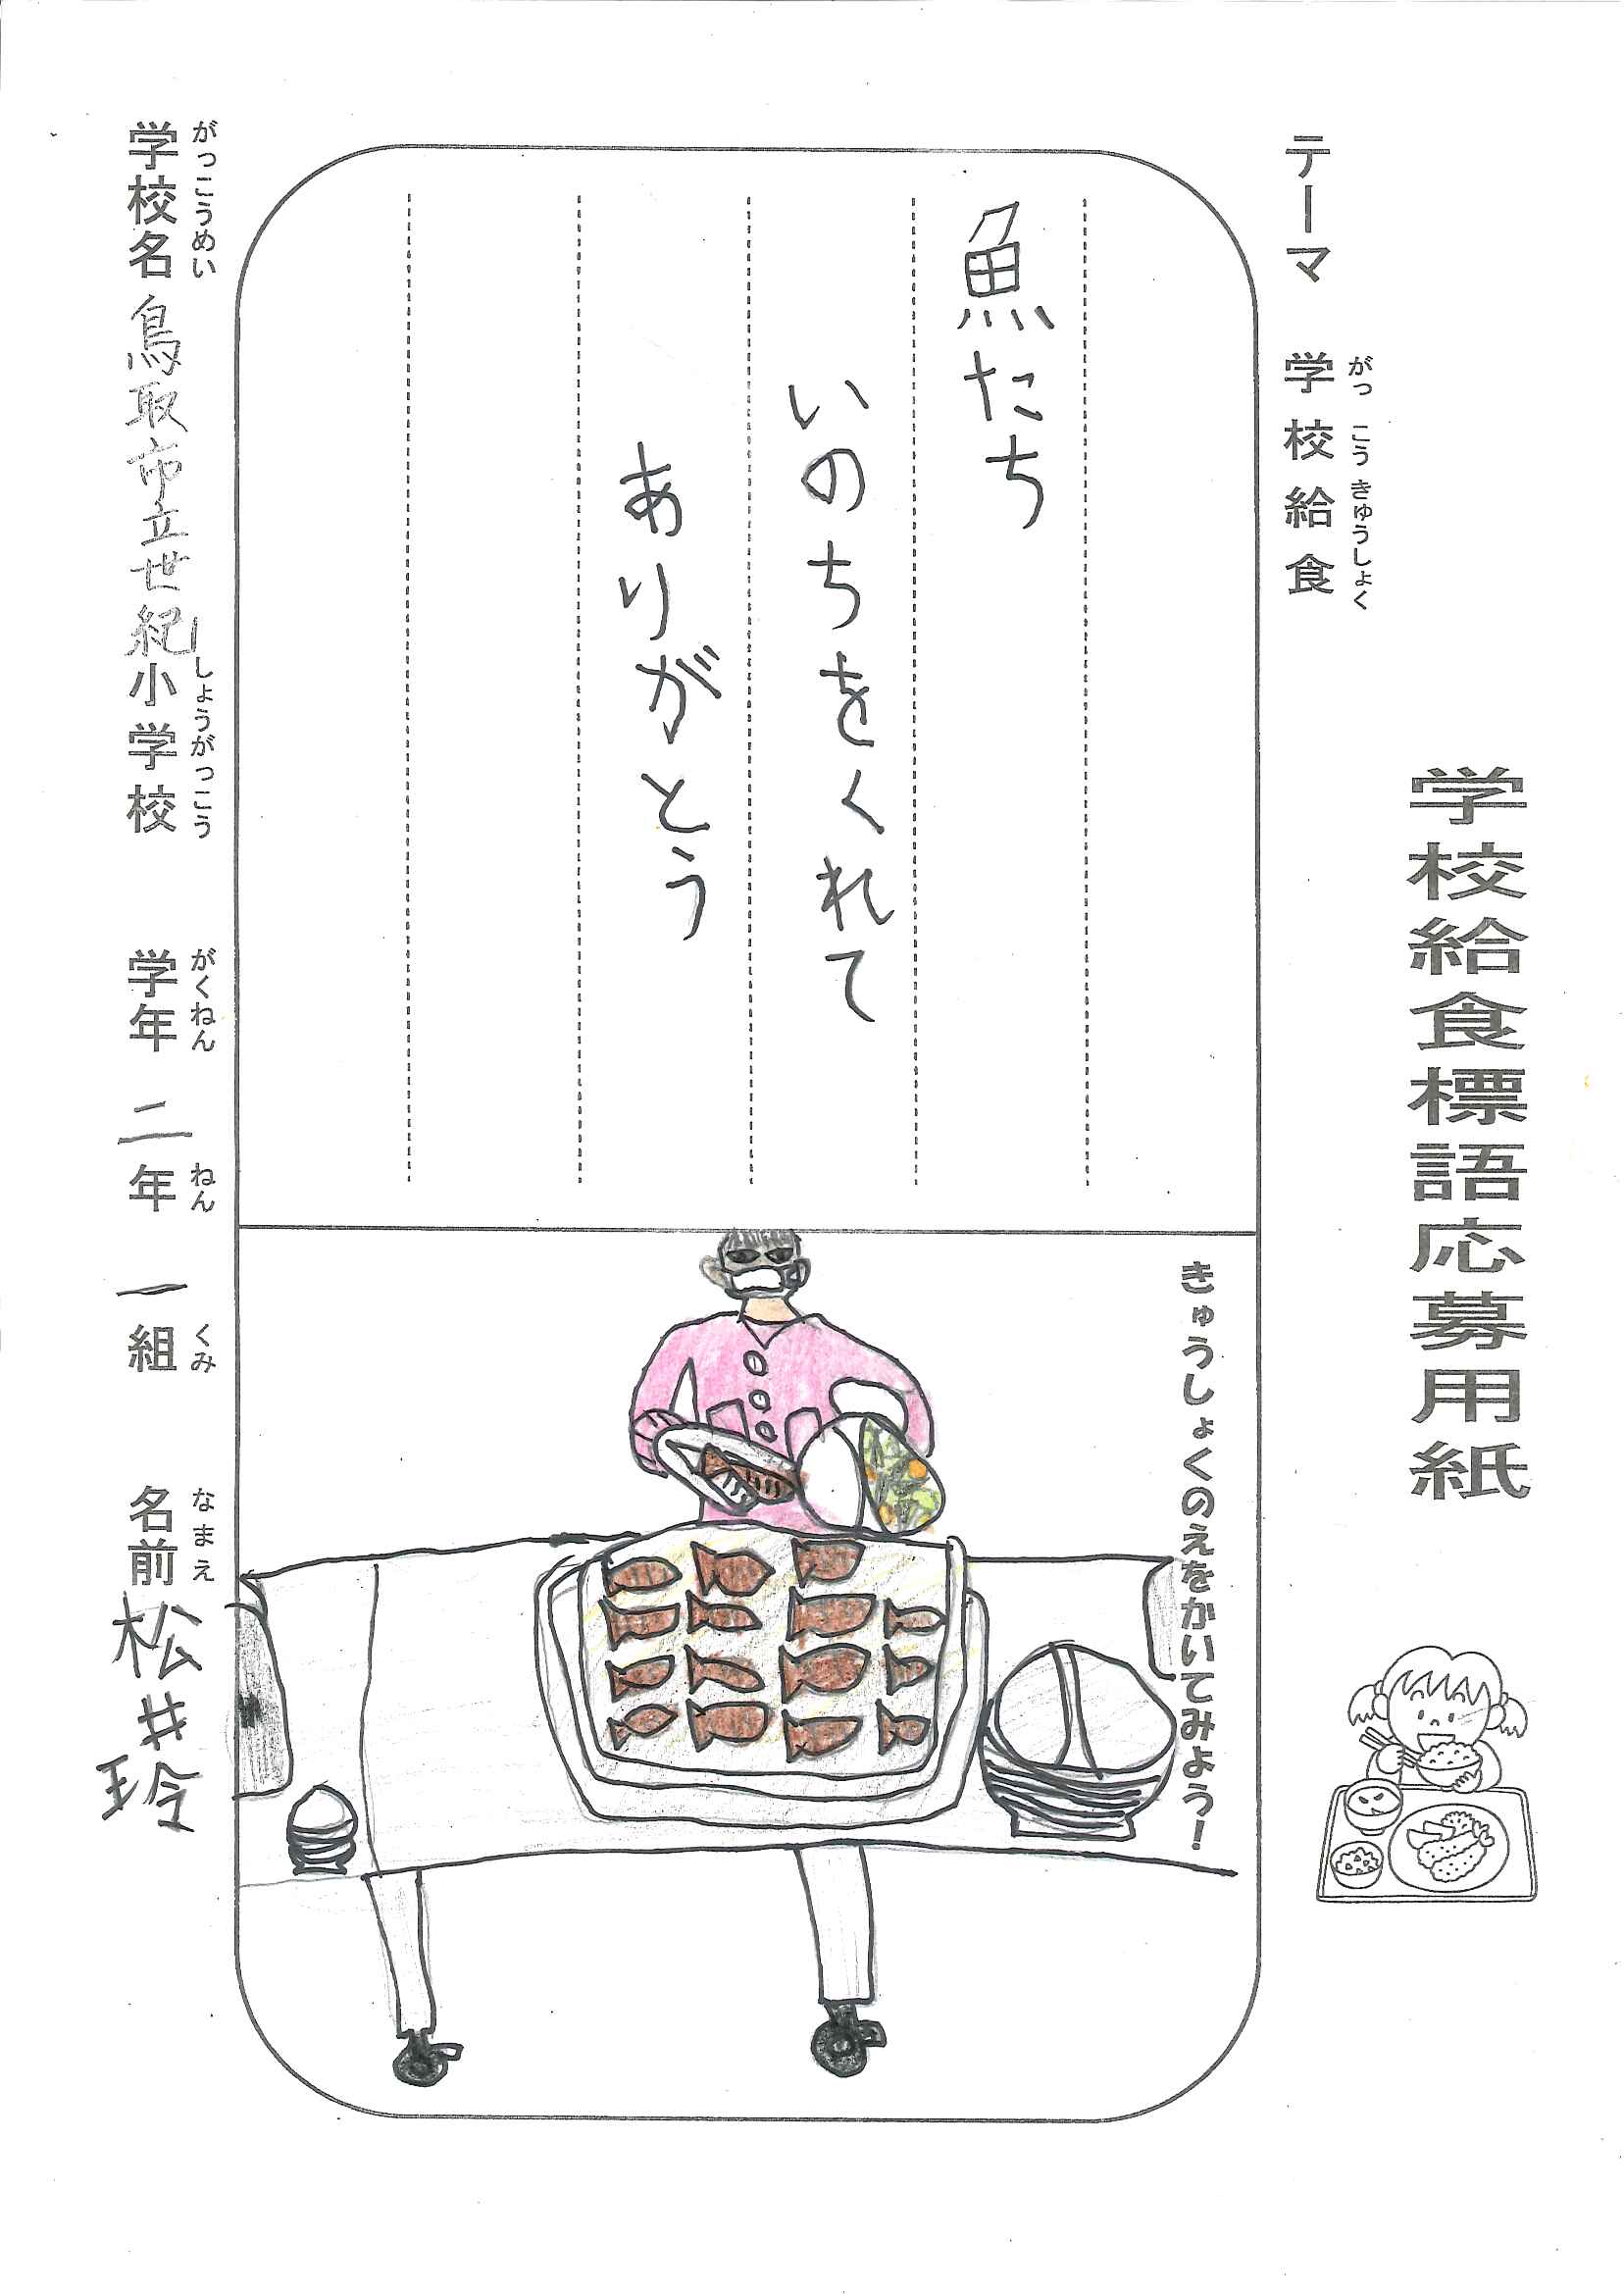 学校給食標語応募用紙
テーマ　学校給食
がっこうきゅうしょく
魚たち
いのちをくれて
ありがとう
きゅうしょくのえをかいてみよう！
がっこうめい　しょうがっこう　がくねん　ねん　くみ　なまえ
学校名　鳥取市立世紀小学校　学年　二年　一組　名前　松井玲